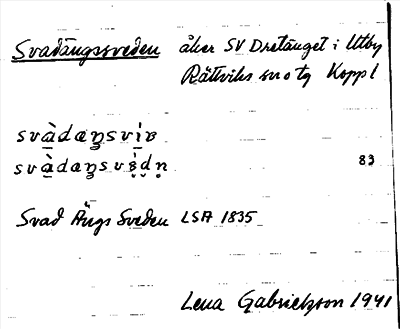 Svadängssveden åker SV Dretänget i Utby
Rättviks sn o tg Kopp l
svàdæŋsvìɞ
svàdæŋsvèdn 83
Svad Ängs Sveden LSA 1835
Lena Gabrielsson 1941